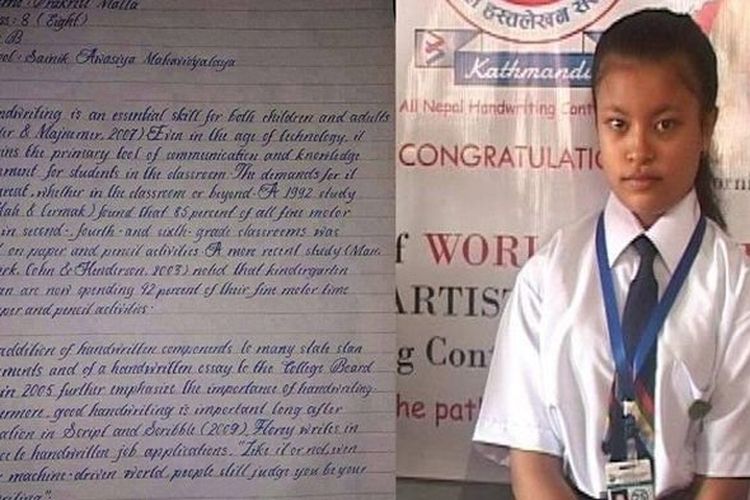 : Prakriti Malla
: 8 (Eight)
: B
: Sainik Awasiya Mahavidyalaya
is an essential skill for both children and adults
& Majnemer, 2007) Even in the age of technology, it
the primary tool of communication and knowledge
for students in the classroom. The demands for it
whether in the classroom or beyond. A 1992 study
found that 85 percent of all fine motor
in second-, fourth- and sixth-grade classrooms was
on paper and pencil activities. A more recent study (Marr,
Cohn & Henderson, 2003) noted that kindergarten
are now spending 42 percent of their fine motor time
and pencil activities.
addition of handwritten components to many state
and of a handwritten essay to the College Board
in 2005 further emphasize the importance of handwriting.
good handwriting is important long after
in Script and Scribble (2009), Florey writes in
to handwritten job applications, "Like it or not, even
machine-driven world, people still judge you by your
हस्तलेखन
Kathmandu
All Nepal Handwriting
CONGRATULATIO
f WOR
ARTIS
g Con
he path